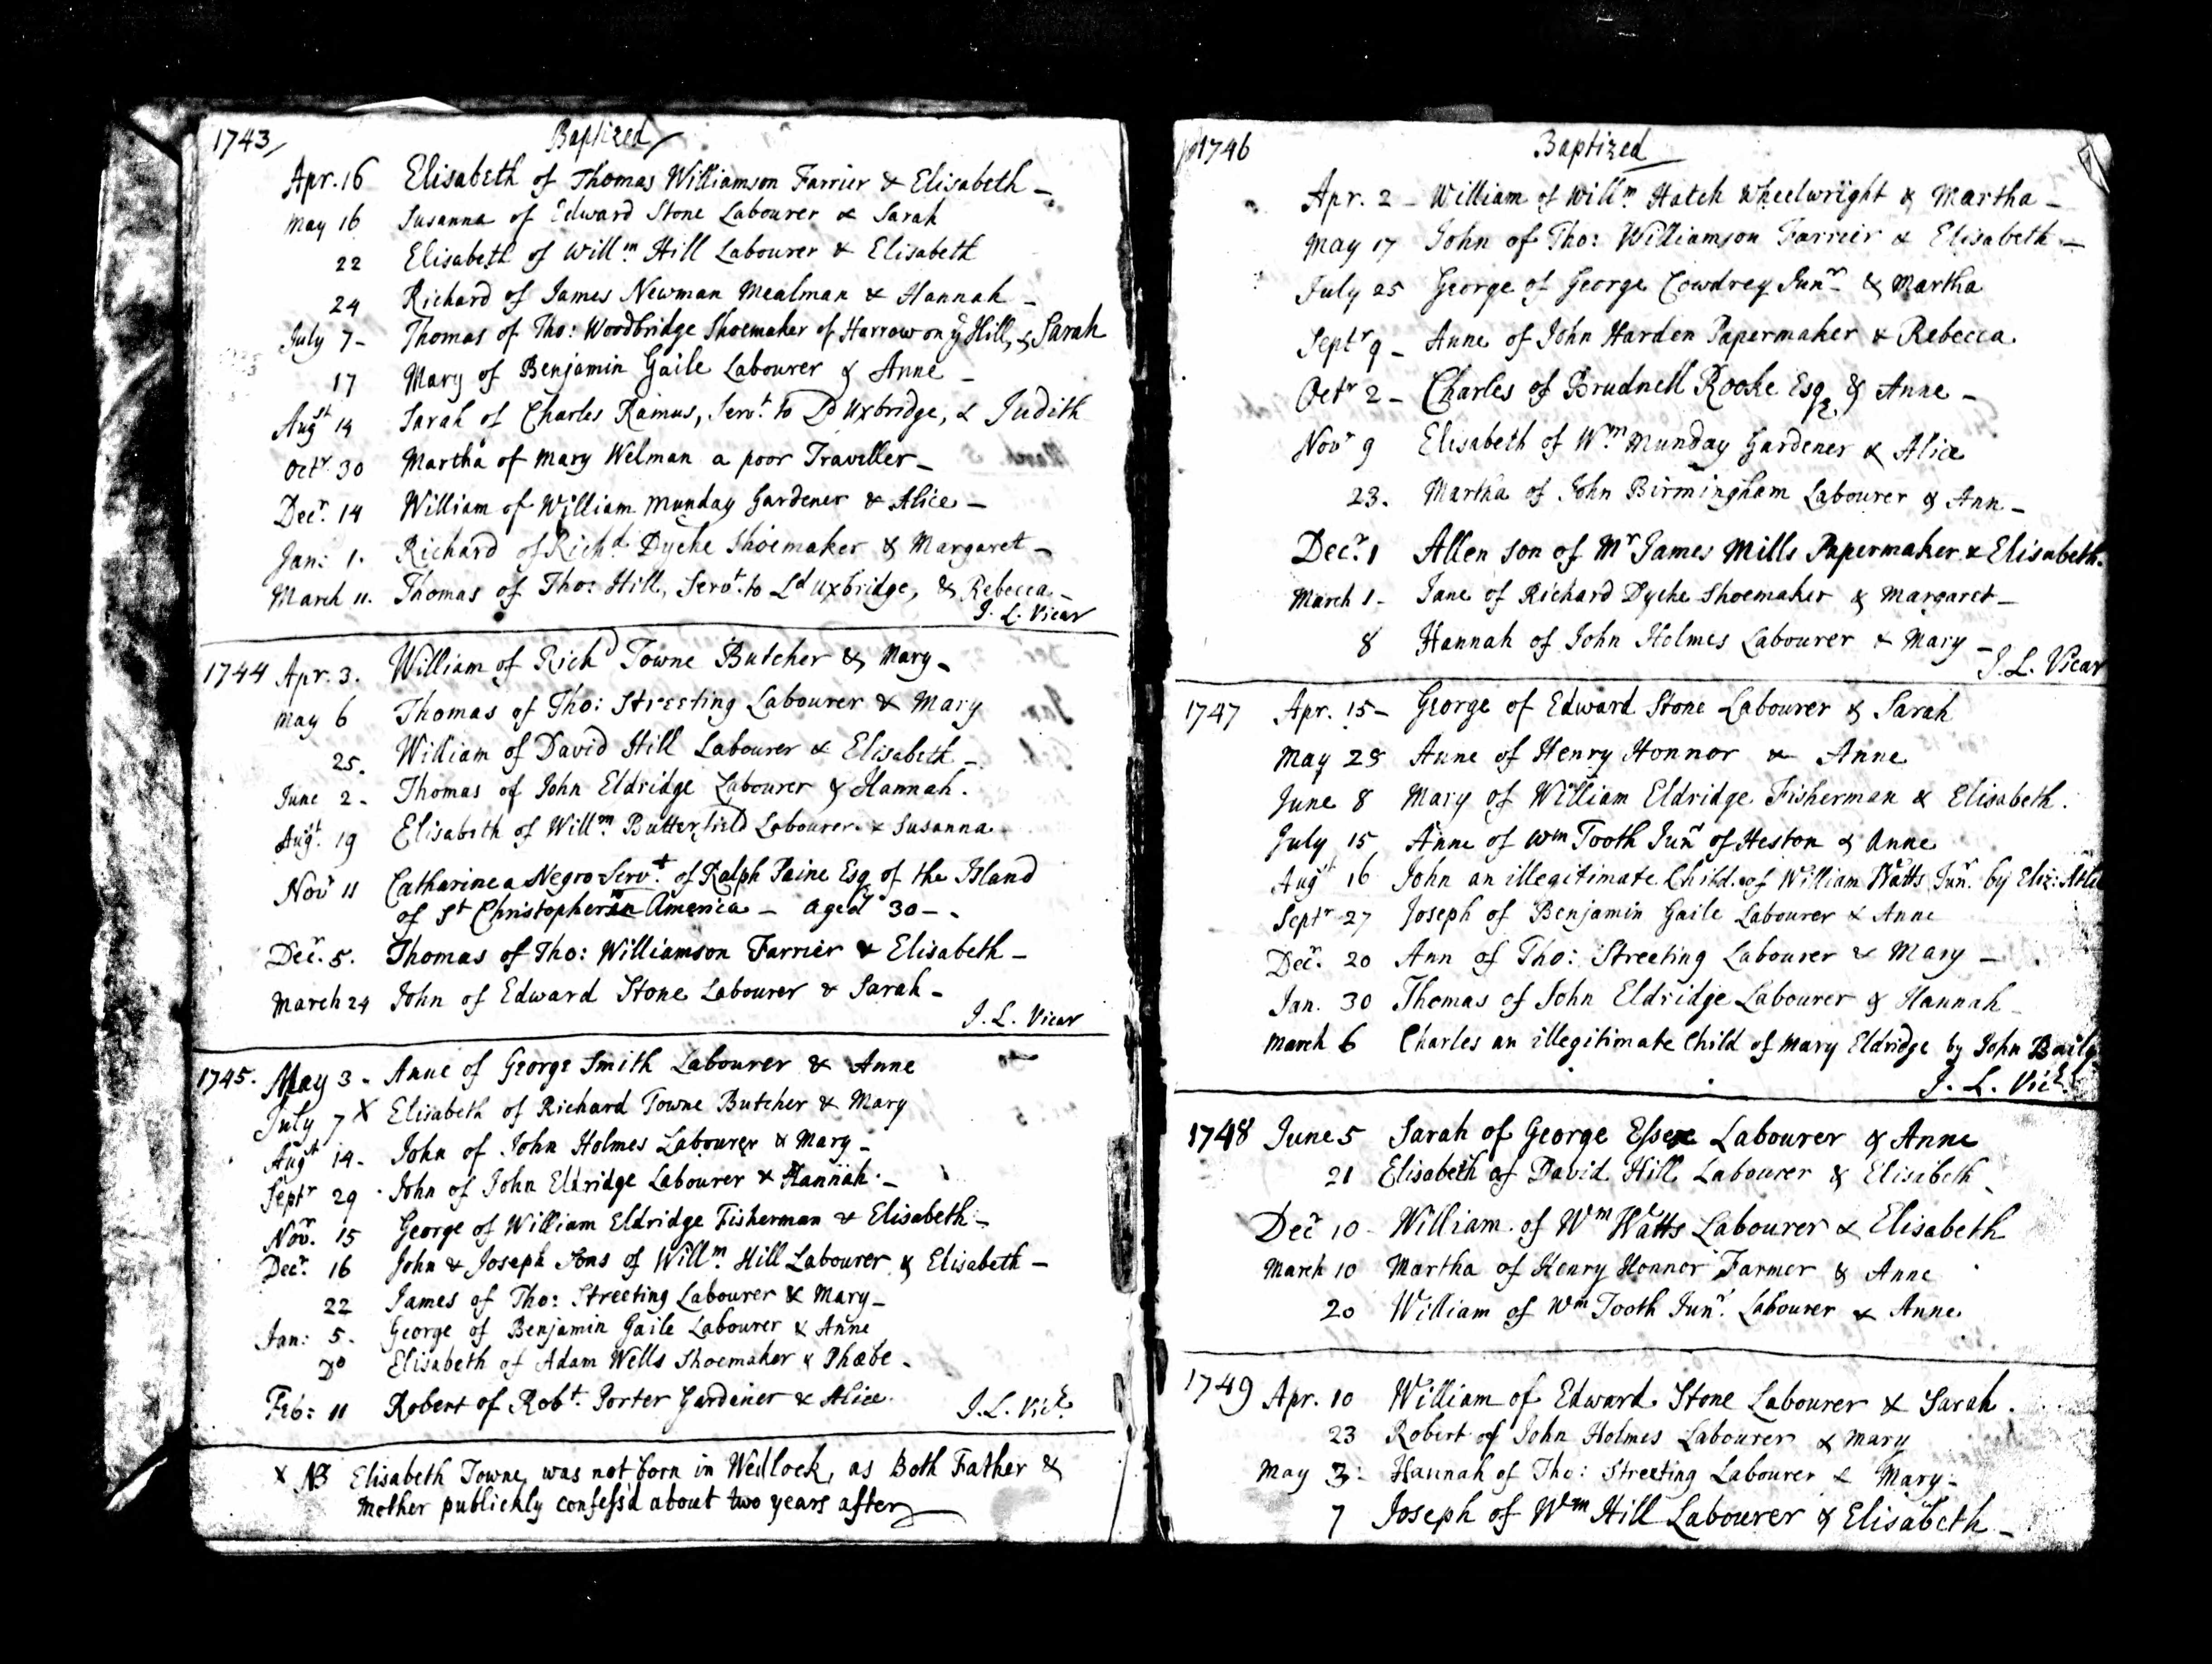 1743 Baptized
Apr. 16 Elisabeth of Thomas Williamson Farrier & Elisabeth –
May 16 Susanna of Edward Stone Labourer & Sarah
22 Elisabeth of Willm Hill Labourer & Elisabeth
24 Richard of James Newman Mealman & Hannah –
July 7 – Thomas of Tho: Woodbridge Shoemaker of Harrow on ye Hill, & Sarah
17 Mary of Benjamin Gaile Labourer & Anne –
Augst 14 Sarah of Charles Ramus, Servt. to Ld Uxbridge, & Judith
Octr. 30 Martha of Mary Welman a poor Traveller –
Decr. 14 William of William Munday Gardener & Alice –
Jan: 1. Richard of Richd. Dyche Shoemaker & Margaret –
March 11. Thomas of Tho: Hill, Servt. to Ld Uxbridge, & Rebecca –
J. L. Vicar
1744 Apr. 3. William of Richd Towne Butcher & Mary –
May 6 Thomas of Tho: Streeting Labourer & Mary
25. William of David Hill Labourer & Elisabeth –
June 2 – Thomas of John Eldridge Labourer & Hannah.
Augt. 19 Elisabeth of Willm. Butterfield Labourer & Susanna
Novr 11 Catharine a Negro Servt. of Ralph Paine Esq of the Island
of St Christopher in America – aged 30 –
Decr. 5. Thomas of Tho: Williamson Farrier & Elisabeth –
March 24 John of Edward Stone Labourer & Sarah –
J. L. Vicar
1745. May 3 – Anne of George Smith Labourer & Anne
July 7 X Elisabeth of Richard Towne Butcher & Mary
Augst 14 – John of John Holmes Labourer & Mary –
Septr 29 John of John Eldridge Labourer & Hannah –
Novr. 15 George of William Eldridge Fisherman & Elisabeth –
Decr. 16 John & Joseph Sons of Willm. Hill Labourer & Elisabeth –
22 James of Tho: Streeting Labourer & Mary –
Jan: 5 – George of Benjamin Gaile Labourer & Anne
Do Elisabeth of Adam Wells Shoemaker & Phœbe –
Feb: 11 Robert of Robt. Porter Gardiner & Alice. J. L. Vicr.
X NB Elisabeth Towne was not born in Wedlock, as Both Father &
Mother publickly confess'd about two years after
1746 Baptized
Apr. 2 – William of Willm Hatch Wheelwright & Martha –
May 17 John of Tho: Williamson Farrier & Elisabeth –
July 25 George of George Cowdrey Junr – & Martha
Septr 9 – Anne of John Harden Papermaker & Rebecca
Octr 2 – Charles of Brudnell Rooke Esqr & Anne –
Novr 9 Elisabeth of Wm Munday Gardener & Alice
23. Martha of John Birmingham Labourer & Ann –
Decr. 1 Allen Son of Mr James Mills Papermaker & Elisabeth.
March 1 – Jane of Richard Dyche Shoemaker & Margaret –
8 Hannah of John Holmes Labourer & Mary –
J. L. Vicar
1747 Apr. 15 – George of Edward Stone Labourer & Sarah
May 28 Anne of Henry Honnor & Anne
June 8 Mary of William Eldridge Fisherman & Elisabeth.
July 15 Anne of Wm Tooth Junr of Heston & Anne
Augt 16 John an illegitimate Child of William Watts Junr. by Eliz:
Septr 27 Joseph of Benjamin Gaile Labourer & Anne
Decr. 20 Ann of Tho: Streeting Labourer & Mary –
Jan. 30 Thomas of John Eldridge Labourer & Hannah
March 6 Charles an illegitimate Child of Mary Eldridge by John Baily
J. L. Vicr.
1748 June 5 Sarah of George Essex Labourer & Anne
21 Elisabeth of David Hill Labourer & Elisabeth
Decr 10 – William of Wm Watts Labourer & Elisabeth
March 10 Martha of Henry Honnor Farmer & Anne
20 William of Wm Tooth Junr. Labourer & Anne
1749 Apr. 10 William of Edward Stone Labourer & Sarah.
23 Robert of John Holmes Labourer & Mary
May 3 – Hannah of Tho: Streeting Labourer & Mary –
7 Joseph of Wm Hill Labourer & Elisabeth –